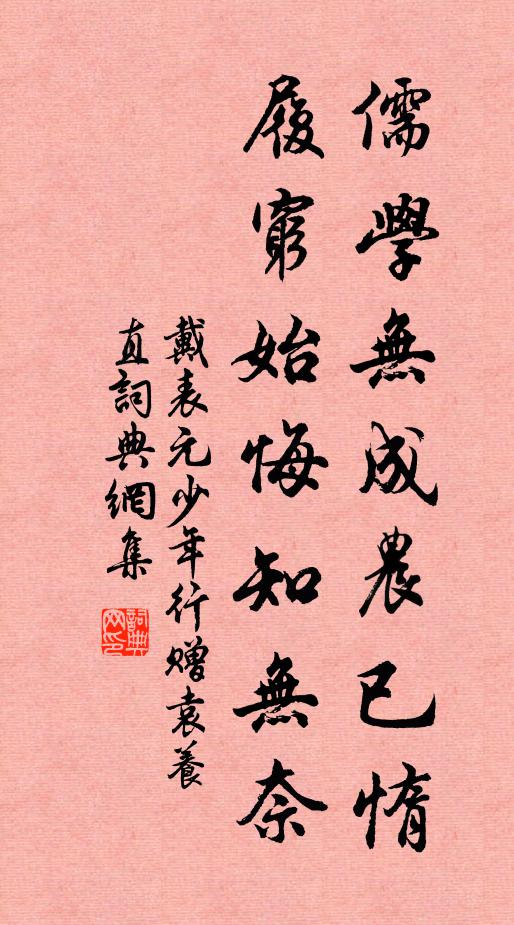 儒學無成農已惰
履窮始悔知無奈
戴表元少年行贈袁養
直詞典網集
詞典
网印